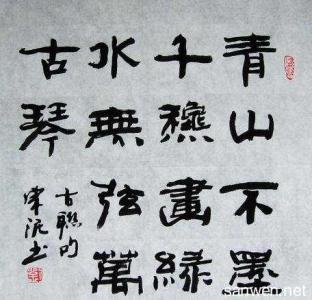 青山不墨
千穐畫綠
水無弦萬
古琴
古聯句
书
sanwen.net